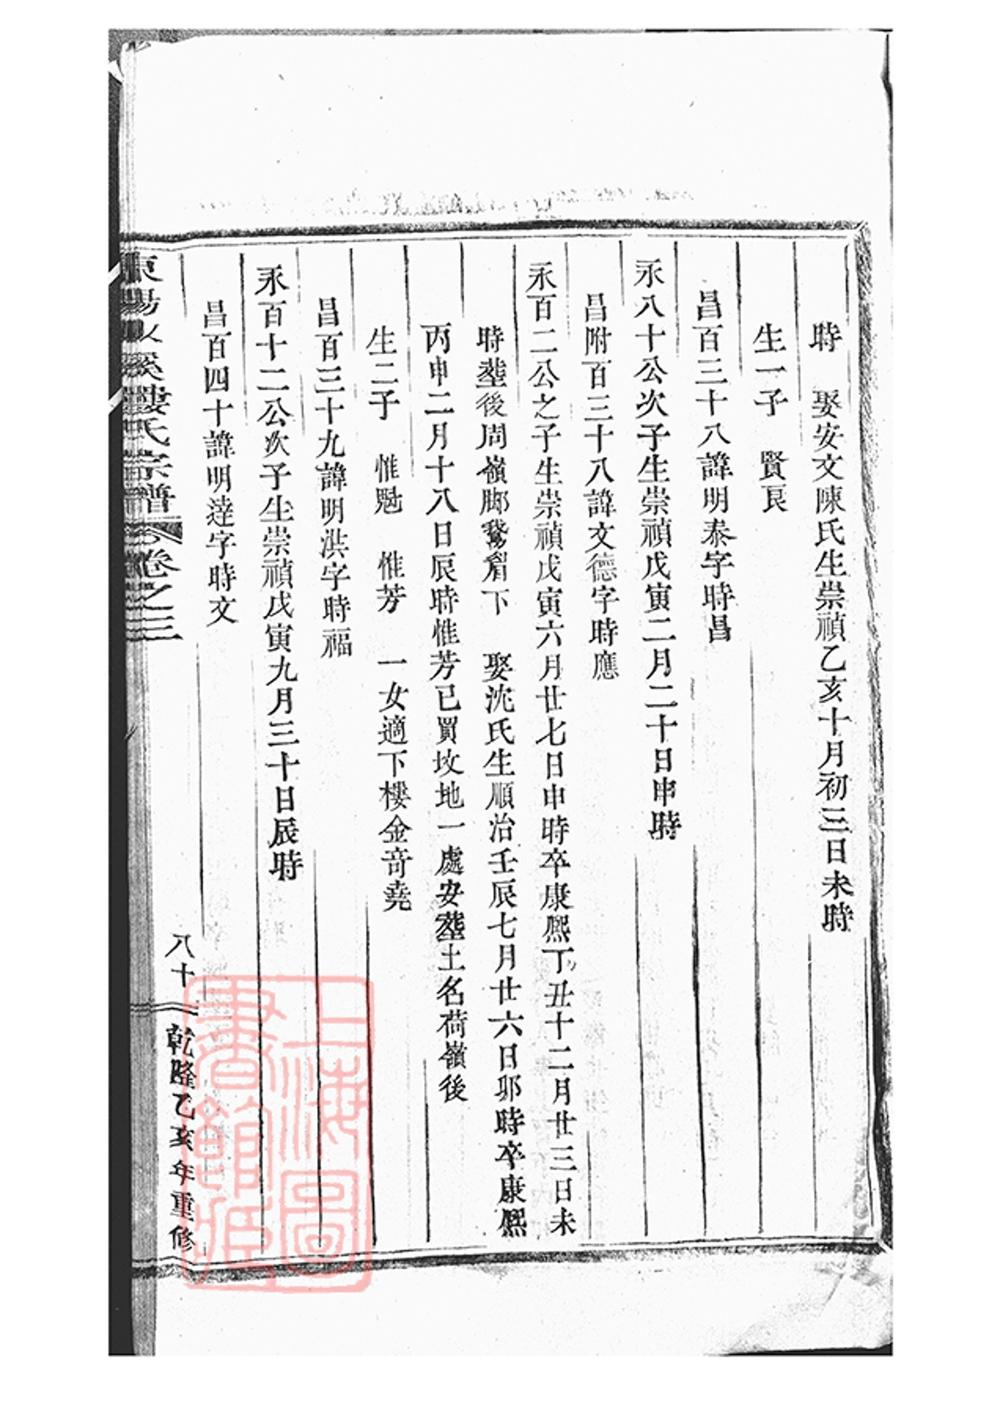 時　娶安文陳氏生崇禎乙亥十月初三日未時
生一子　賢良
昌百三十八諱明泰字時昌
永八十公次子生崇禎戊寅二月二十日申時
昌附百三十八諱文德字時應
永百二公之子生崇禎戊寅六月廿七日申時卒康熙丁丑十二月廿三日未
時塟後周嶺脚鵞眉下　娶沈氏生順治壬辰七月廿六日卯時卒康熙
丙申二月十八日辰時惟芳已買坟地一處安塟土名荷嶺後
生二子　惟　惟芳　一女適下樓金奇堯
昌百三十九諱明洪字時福
永百十二公次子生崇禎戊寅九月三十日辰時
昌百四十諱明達字時文
東陽 溪婁氏宗譜　卷之三
八十　乾隆乙亥年重修
上海圖
書館藏